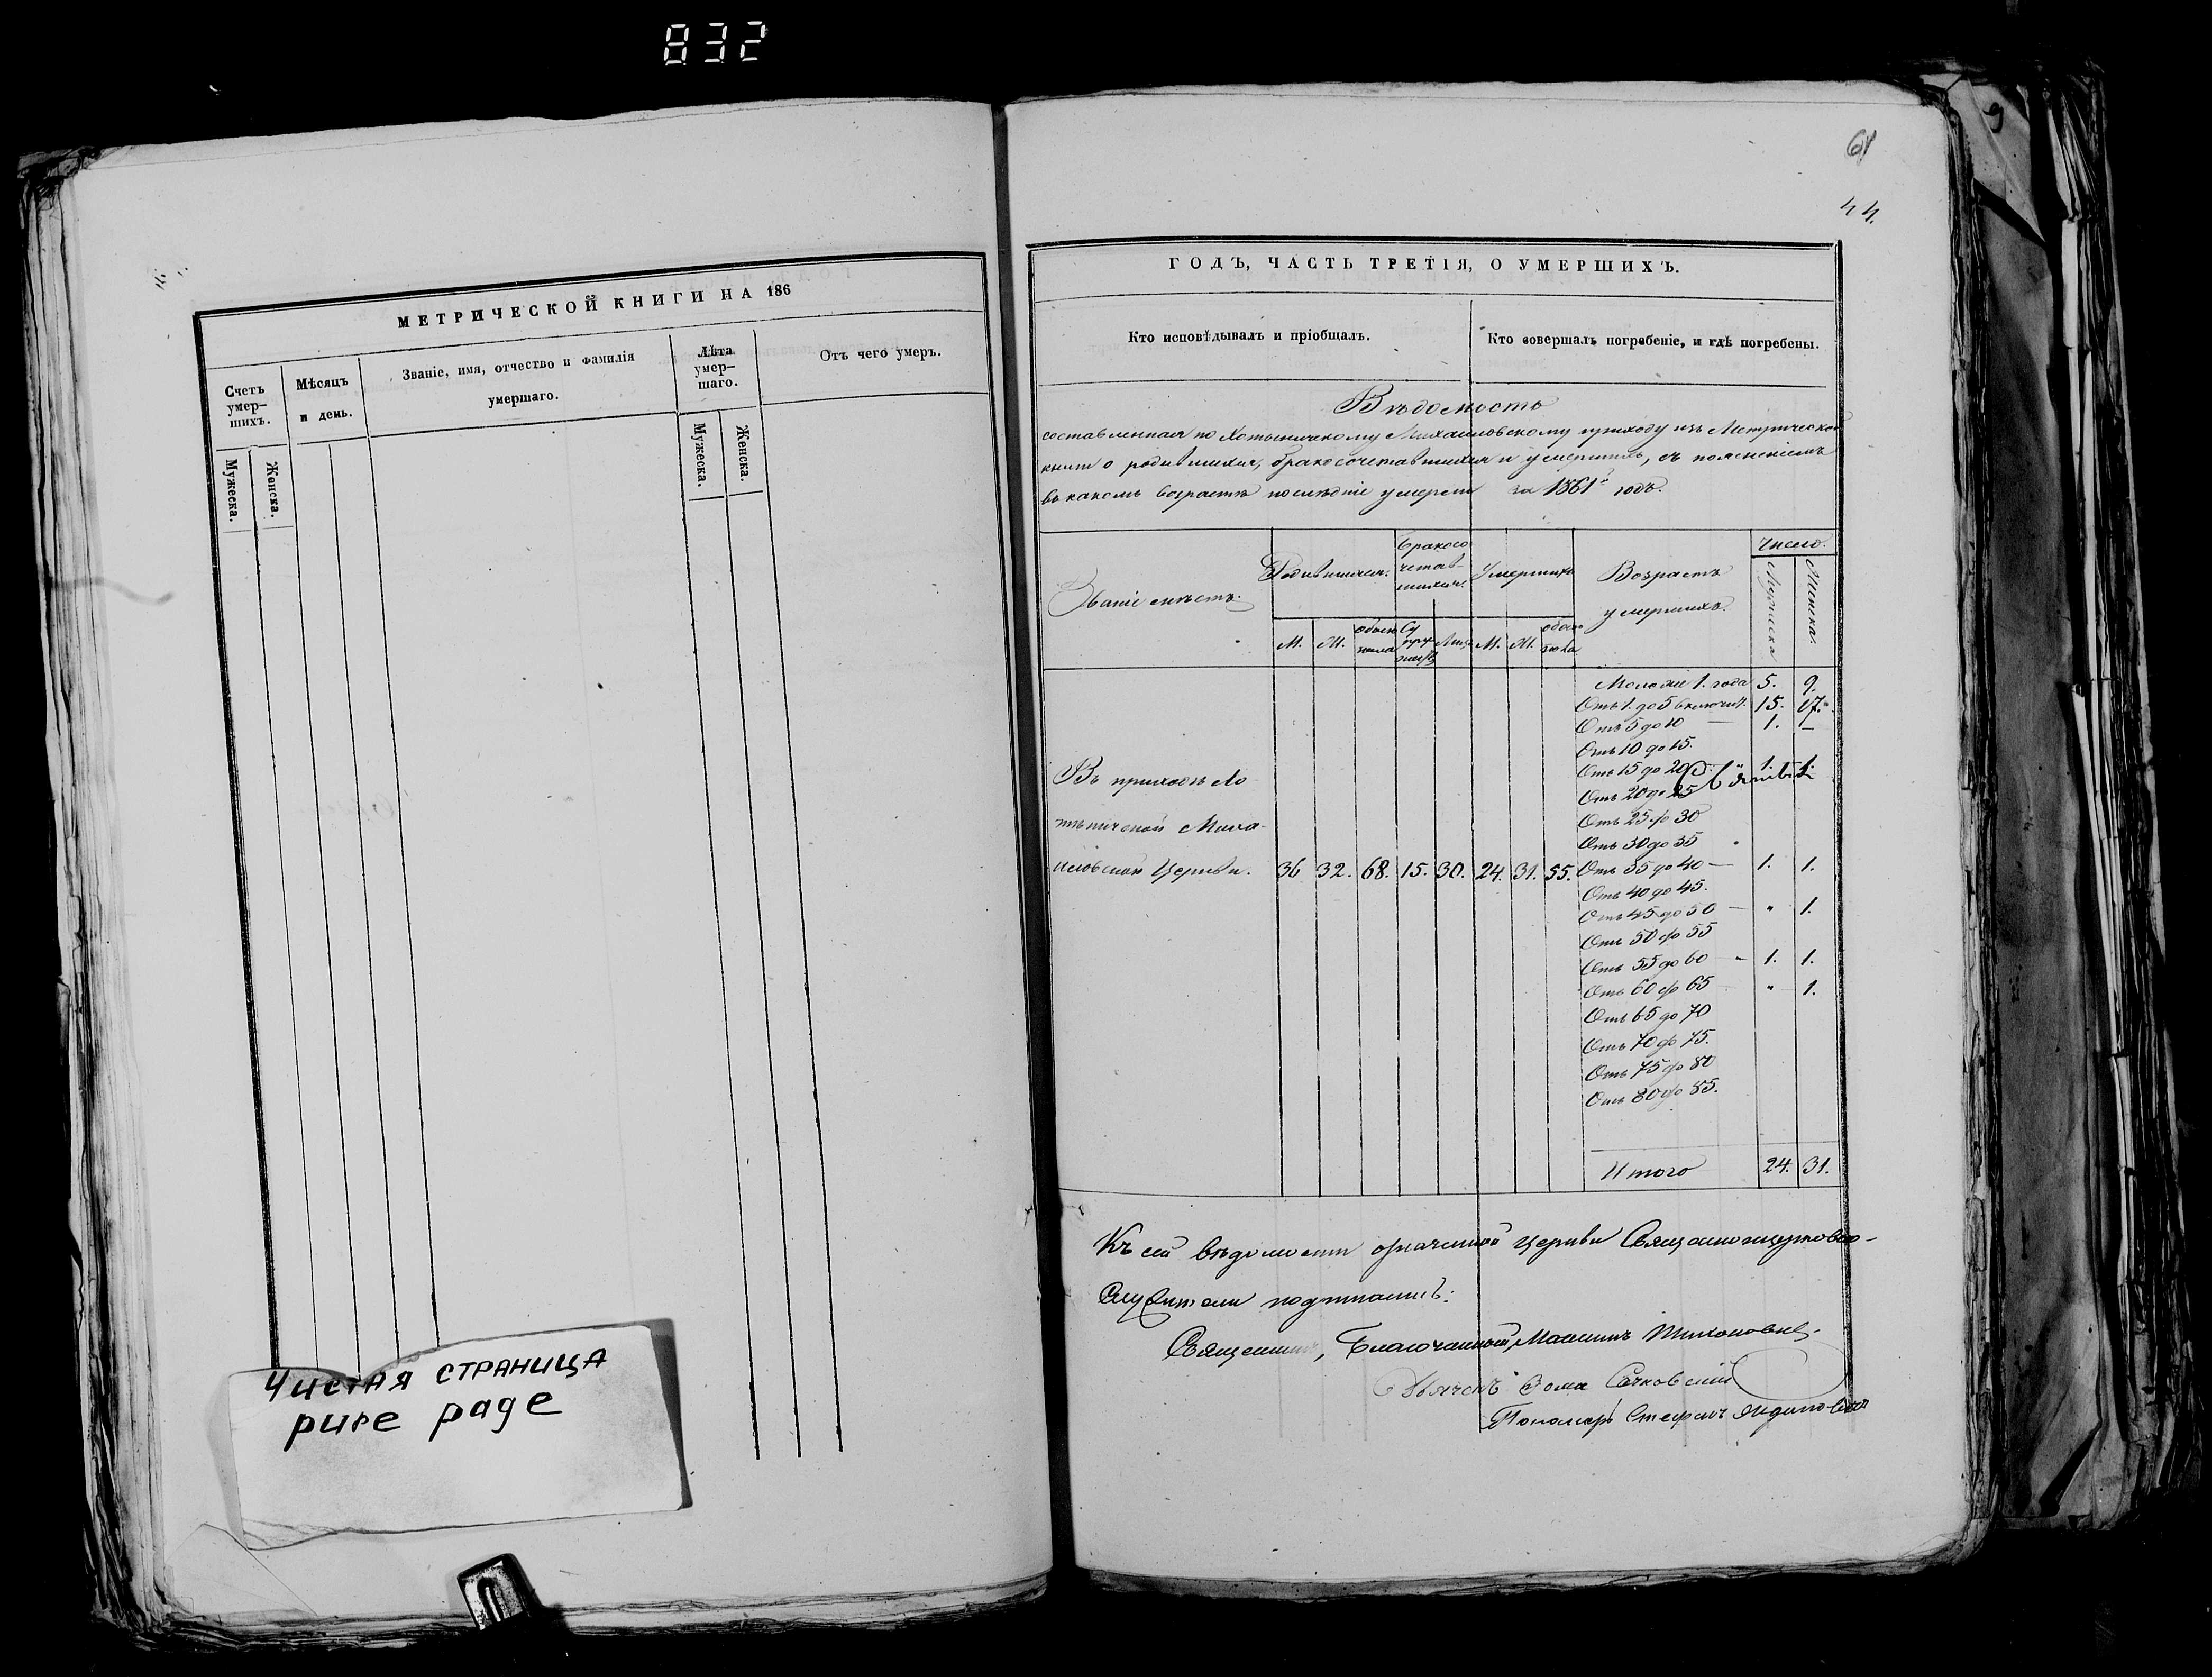 832
МЕТРИЧЕСКОЙ КНИГИ НА 186
Счетъ умер-
шихъ.
Мѣсяцъ
и день.
Званіе, имя, отчество и фамилія
умершаго.
Лѣта
умер-
шаго.
Отъ чего умеръ.
Мужеска.
Женска.
Мужеска.
Женска.
Чистая страница
pure page
44.
ГОДЪ, ЧАСТЬ ТРЕТІЯ, О УМЕРШИХЪ.
Кто исповѣдывалъ и пріобщалъ.
Кто совершалъ погребеніе, и гдѣ погребены.
Вѣдомость
составленная по Хотыничскому Михаиловскому приходу изъ Метрической
книги о родившихся, бракосочетавшихся и умершихъ, съ поясненіемъ
въ какомъ возрастѣ послѣдніе умерли за 1861й годъ.
Званіе мѣстъ.
Родившихся.
Бракосо
четав-
шихся.
Умершихъ
Возрастъ
умершихъ.
Число.
Мужеска
Женска.
М. Ж. обоего пола Супружествъ Лицъ М. Ж. обоего пола
Въ приходѣ Хо
тыничской Миха-
иловской Церкви. 36 32. 68. 15. 30. 24. 31. 55.
Моложе 1. года 5. 9.
Отъ 1. до 5 включит. 15. 17.
Отъ 5 до 10 — 1. —
Отъ 10 до 15.
Отъ 15 до 20 1. 1.
Отъ 20 до 25
Отъ 25 до 30
Отъ 30 до 35
Отъ 35 до 40 — 1. 1.
Отъ 40 до 45.
Отъ 45 до 50 — " 1.
Отъ 50 до 55
Отъ 55 до 60 - 1. 1.
Отъ 60 до 65 " 1.
Отъ 65 до 70
Отъ 70 до 75.
Отъ 75 до 80
Отъ 80 до 85.
Итого 24. 31.
Къ сей вѣдомости означенной церкви Священноицерковно-
служители подписались:
Священникъ, Благочинный
Дьячекъ Фома Сачковскій
Пономарь Стефанъ